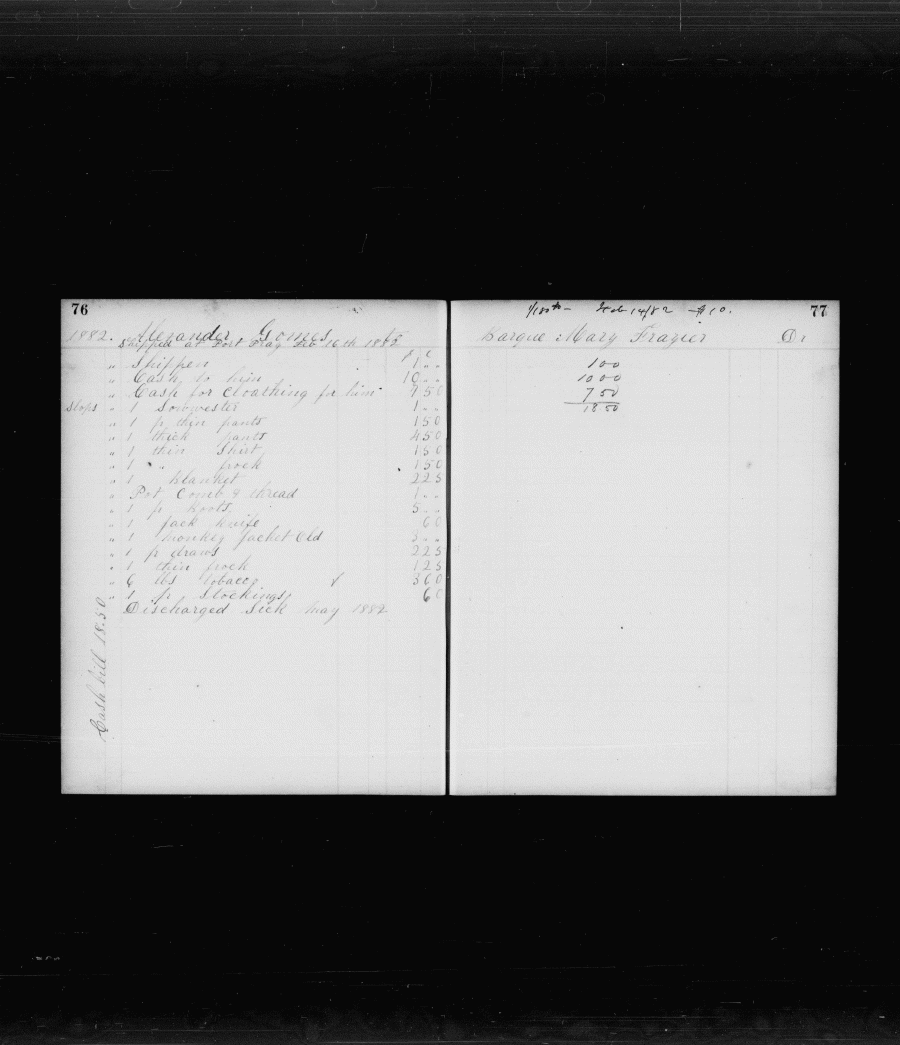 76
1882. Alexander Gomes
Shipped at Port Pray Feb 16th
$ c
" Shippen 1 " "
" Cash to him 10 " "
" Cash for Cloathing for him 7 50
Slops " 1 Sowwester 1 " "
" 1 p thin pants 1 50
" 1 thick pants 4 50
" 1 thin Shirt 1 50
" 1 " frock 1 50
" 1 blanket 2 25
" Pot Comb & thread 1 " "
" 1 p Boots 5 " "
" 1 jack knife 60
" 1 monkey Jacket Old 5 " "
" 1 p draws 2 25
" 1 thin frock 1 25
" 6 lbs tobacco 3 60
" 1 p Stockings 60
Discharged Sick May 1882
Cash bill 18.50
Feb 14/82 $10.
77
Barque Mary Frazier Dr
1 00
10 00
7 50
18 50